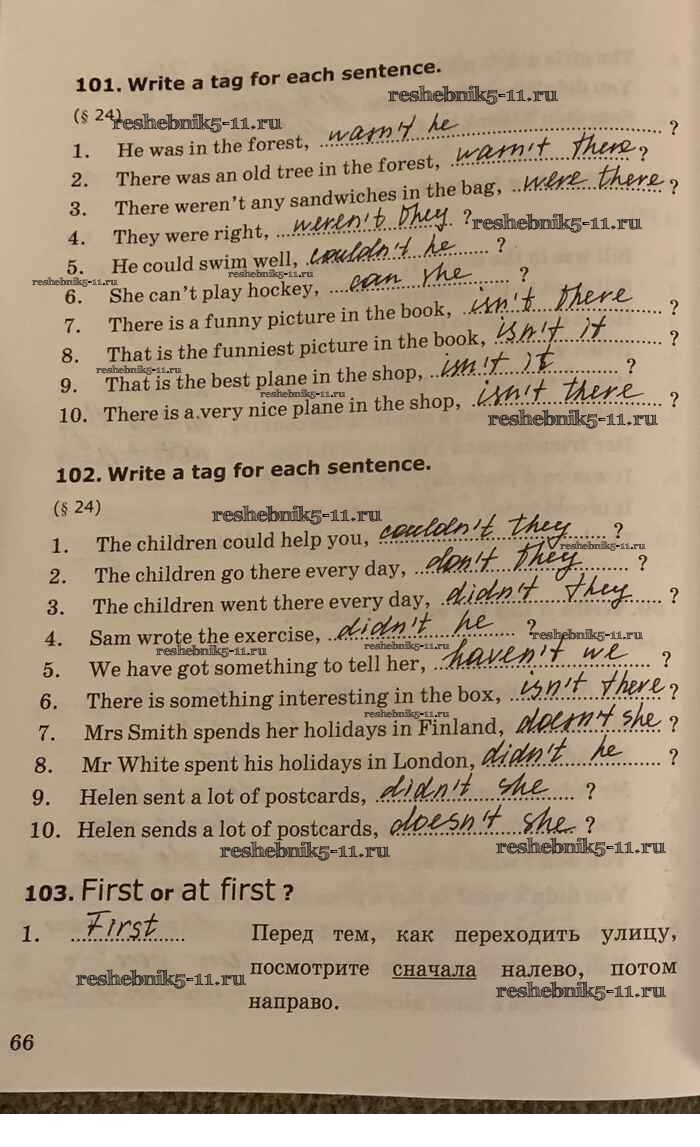 101. Write a tag for each sentence.
reshebnik5-11.ru
(§ 24)
reshebnik5-11.ru
1. He was in the forest, wasn't he ?
2. There was an old tree in the forest, wasn't there ?
3. There weren't any sandwiches in the bag, were there ?
4. They were right, weren't they ? reshebnik5-11.ru
5. He could swim well, couldn't he ?
reshebnik5-11.ru reshebnik5-11.ru
6. She can't play hockey, can she ?
7. There is a funny picture in the book, isn't there ?
8. That is the funniest picture in the book, isn't it ?
reshebnik5-11.ru
9. That is the best plane in the shop, isn't it ?
reshebnik5-11.ru
10. There is a very nice plane in the shop, isn't there ?
reshebnik5-11.ru
102. Write a tag for each sentence.
(§ 24)
reshebnik5-11.ru
1. The children could help you, couldn't they ?
reshebnik5-11.ru
2. The children go there every day, don't they ?
3. The children went there every day, didn't they ?
4. Sam wrote the exercise, didn't he ?
reshebnik5-11.ru reshebnik5-11.ru reshebnik5-11.ru
5. We have got something to tell her, haven't we ?
6. There is something interesting in the box, isn't there ?
reshebnik5-11.ru
7. Mrs Smith spends her holidays in Finland, doesn't she ?
8. Mr White spent his holidays in London, didn't he ?
9. Helen sent a lot of postcards, didn't she ?
10. Helen sends a lot of postcards, doesn't she ?
reshebnik5-11.ru reshebnik5-11.ru
103. First or at first ?
1. First Перед тем, как переходить улицу,
посмотрите сначала налево, потом
reshebnik5-11.ru reshebnik5-11.ru
направо.
66